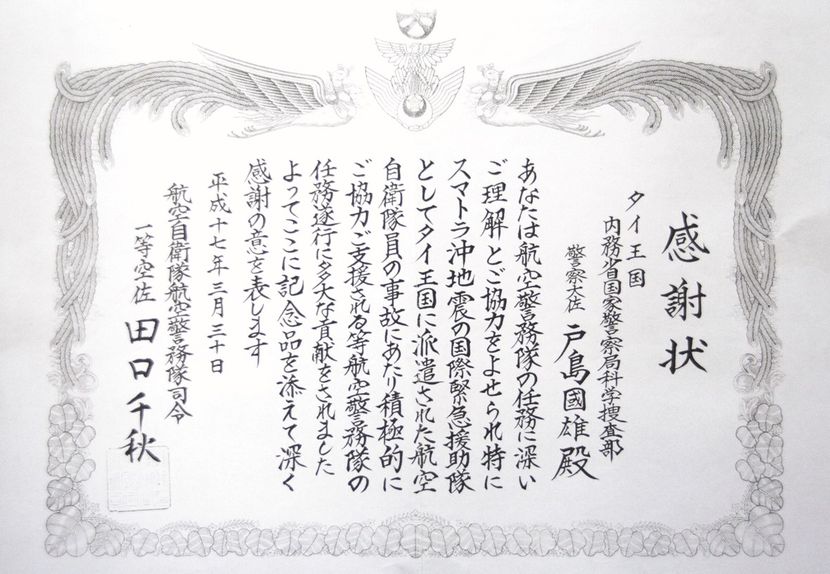 感謝状
タイ王国
内務省国家警察局科学捜査部
警察大佐 戸島國雄 殿
あなたは航空警務隊の任務に深い
ご理解とご協力をよせられ特に
スマトラ沖地震の国際緊急援助隊
としてタイ王国に派遣された航空
自衛隊員の事故にあたり積極的に
ご協力ご支援される等航空警務隊の
任務遂行に多大な貢献をされました
よってここに記念品を添えて深く
感謝の意を表します
平成十七年三月三十日
航空自衛隊航空警務隊司令
一等空佐 田口千秋